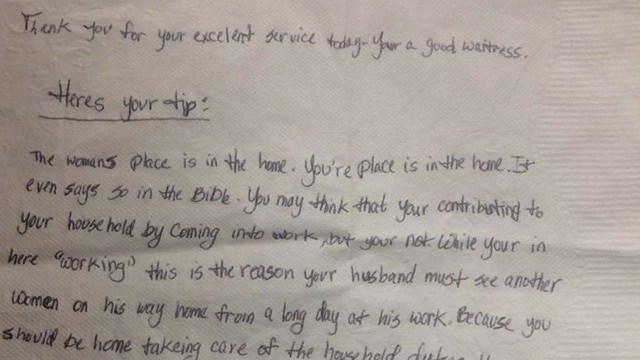 Thank you for your excelent service today- Your a good waitress.
Heres your tip:
The womans place is in the home. You're place is in the home. It
even says so in the Bible. You may think that your contributing to
your household by coming into work, but your not. While your in
here "working" this is the reason your husband must see another
women on his way home from a long day at his work. Because you
should be home takeing care of the household